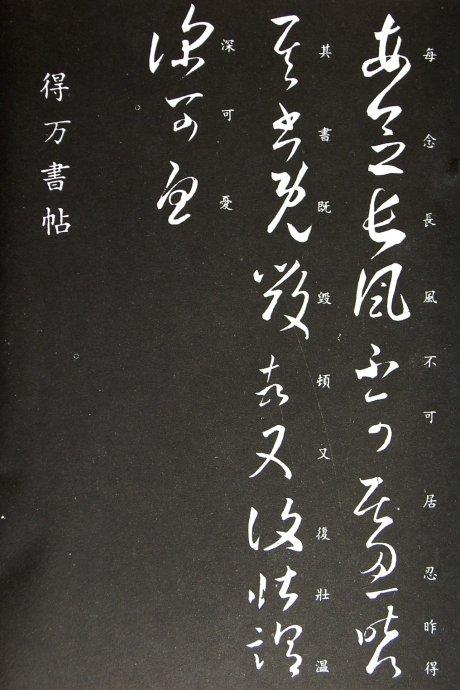 每念長風不可居忍昨得
其書既毀頓又後壯溫
深可憂
得万書帖